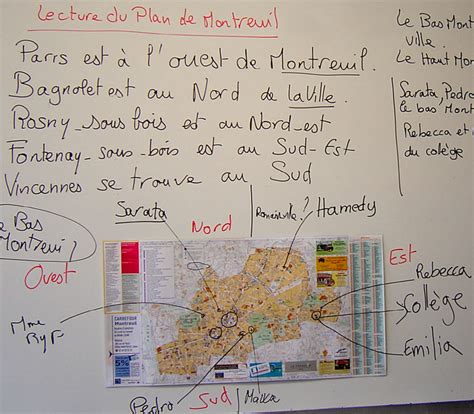 Lecture du Plan de Montreuil
Paris est à l'ouest de Montreuil.
Bagnolet est au Nord de la Ville.
Rosny-sous bois est au Nord-est
Fontenay-sous-bois est au Sud-Est
Vincennes se trouve au Sud
Le Bas Mont
ville.
Le Haut Mon
Sarata, Pedro
le bas Mont
Rebecca e
du collège
e Bas
Montreuil?
Sarata
Nord
Romainville?
Hamedy
Ouest
Est
Rebecca
Collège
Emilia
Mme
CARREFOUR
Montreuil
5%
Pedro
Sud